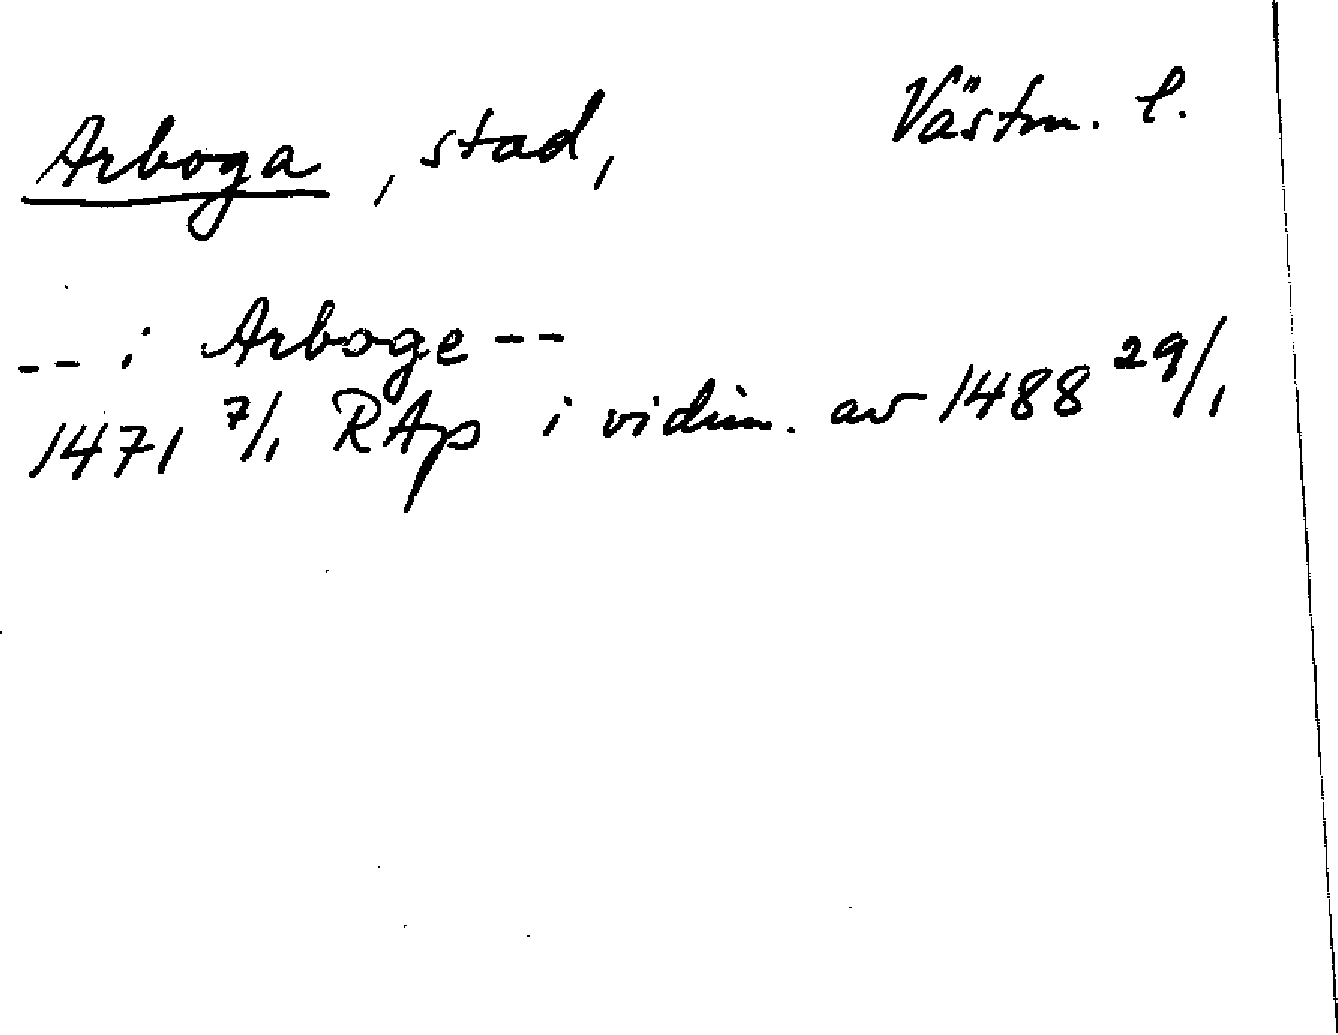 Arboga, stad, Västm. l.
-- i Arboge --
1471 7/1 RAp i vidim. av 1488 29/1